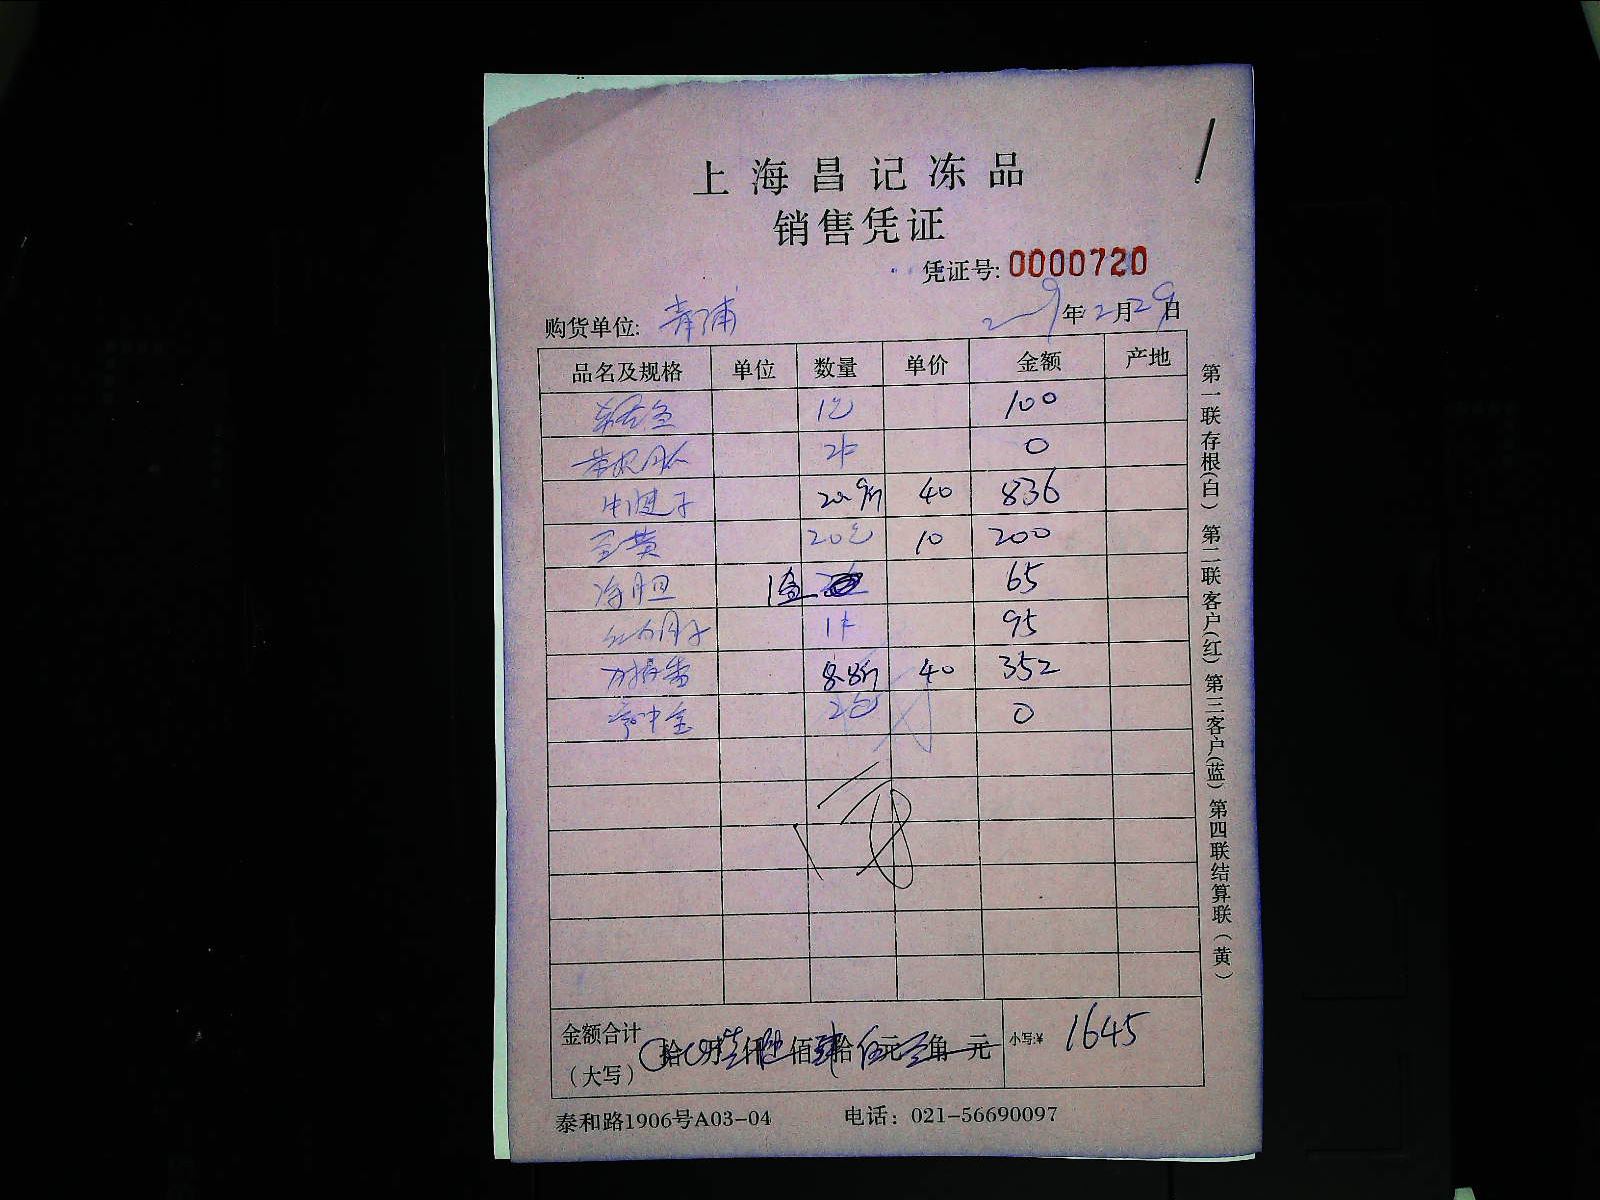 上海昌记冻品
销售凭证
凭证号: 0000720
购货单位: 青浦 年2月29日
品名及规格 单位 数量 单价 金额 产地
100
0
牛腱子 20.9斤 40 836
20包 10 200
1盒 65
95
8.8斤 40 352
2包 0
金额合计
(大写) 拾 万 仟 佰 拾 伍元 角 元 小写:¥ 1645
泰和路1906号A03-04 电话: 021-56690097
第一联存根(白) 第二联客户(红) 第三客户(蓝) 第四联结算联(黄)